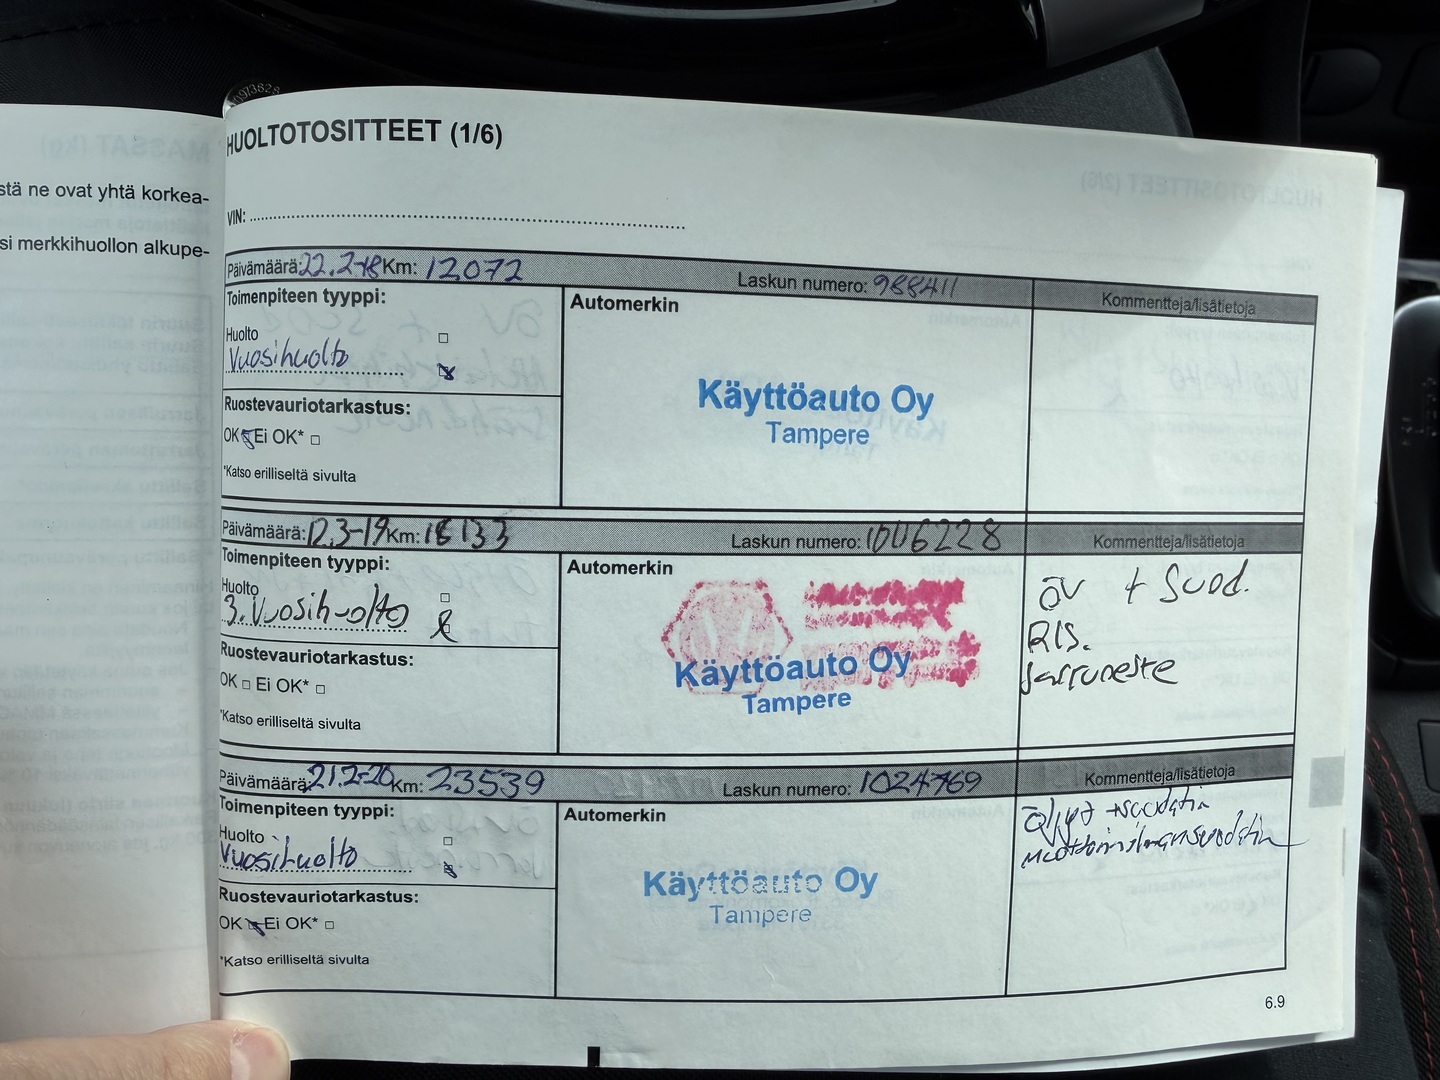 stä ne ovat yhtä korkea-
si merkkihuollon alkupe-
HUOLTOTOSITTEET (1/6)
VIN:
Päivämäärä: 22.2-18 Km: 12072 Laskun numero: 988411 Kommentteja/lisätietoja
Toimenpiteen tyyppi: Automerkin
Huolto
Vuosihuolto
Käyttöauto Oy
Tampere
Ruostevauriotarkastus:
OK Ei OK*
*Katso erilliseltä sivulta
Päivämäärä: 12.3-19 Km: 18133 Laskun numero: 1006228 Kommentteja/lisätietoja
Toimenpiteen tyyppi: Automerkin
Huolto
3. Vuosihuolto
öv + Suod.
RIS.
Jarruneste
Käyttöauto Oy
Tampere
Ruostevauriotarkastus:
OK Ei OK*
*Katso erilliseltä sivulta
Päivämäärä: 21.2-20 Km: 23539 Laskun numero: 1024769 Kommentteja/lisätietoja
Toimenpiteen tyyppi: Automerkin
Huolto
Vuosihuolto
Öljyt + suodatin
moottorinilmansuodatin
Käyttöauto Oy
Tampere
Ruostevauriotarkastus:
OK Ei OK*
*Katso erilliseltä sivulta
6.9